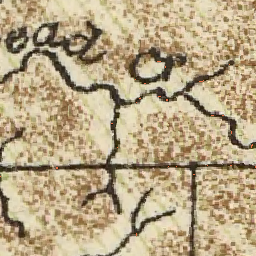 ead Cr